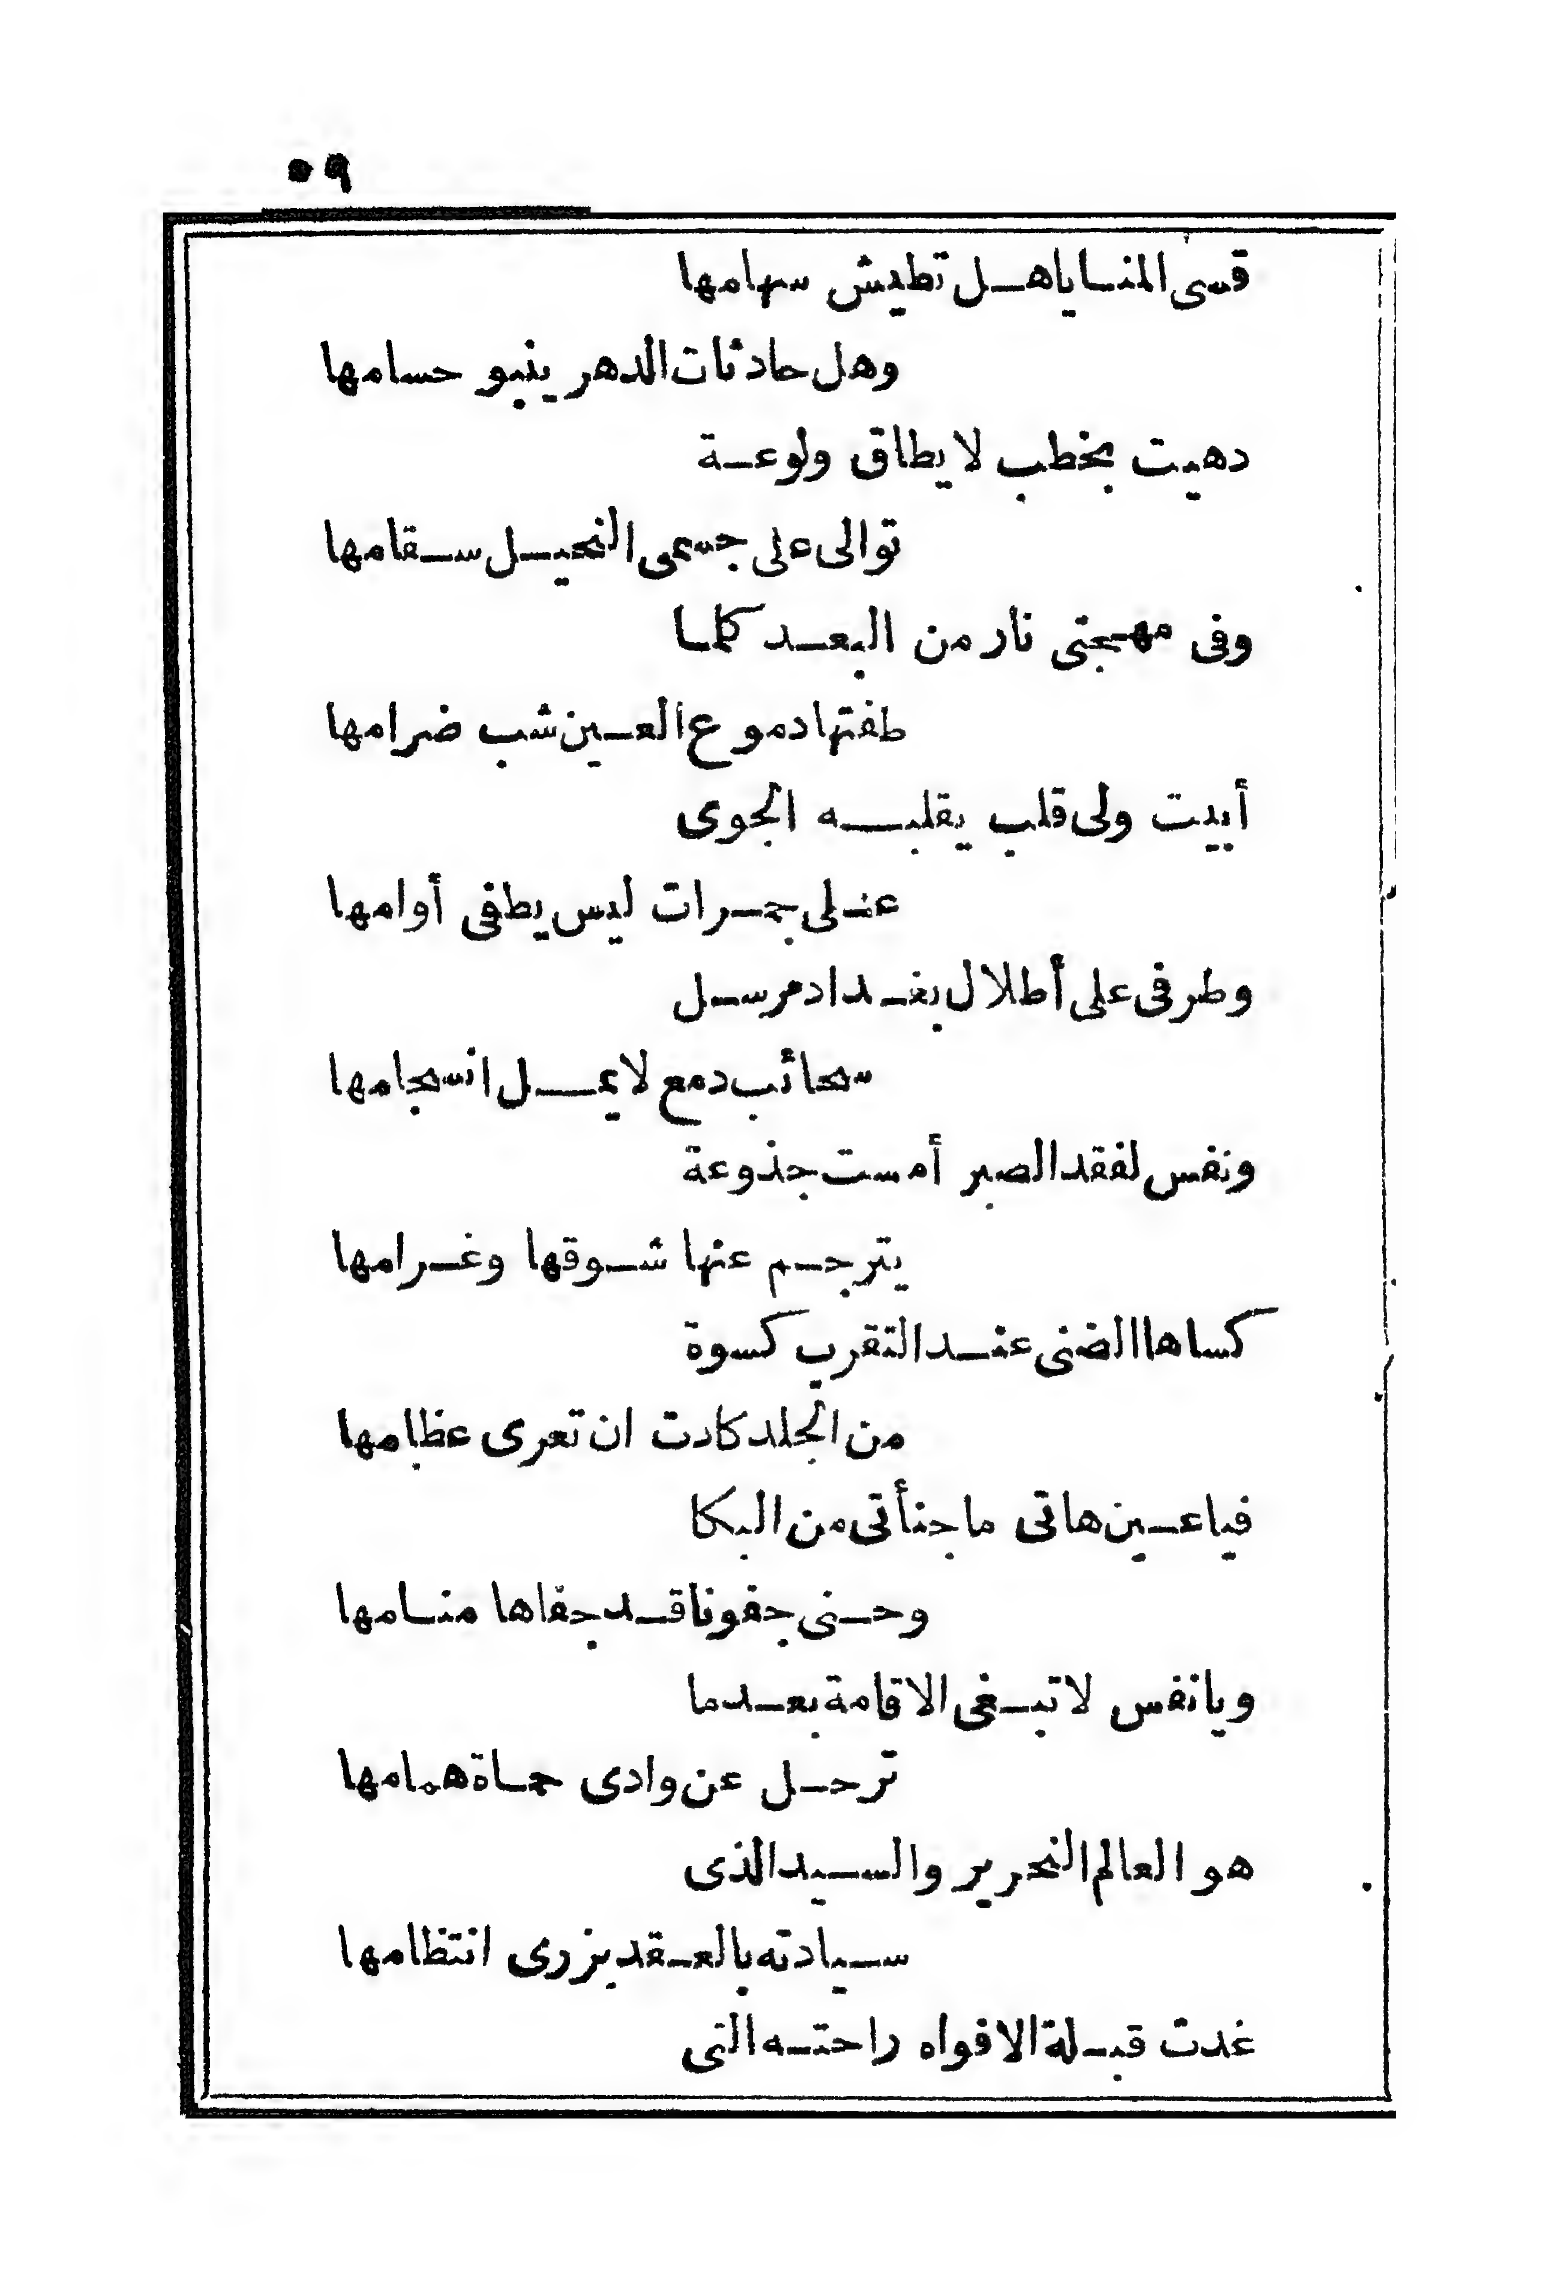 ٥٩
قسى المنايا هل تطيش سهامها
وهل حادثات الدهر ينبو حسامها
دهيت بخطب لا يطاق ولوعة
توالى على جسمى النحيل سقامها
وفى مهجتى نار من البعد كلما
طفتها دموع العين شب ضرامها
أبيت ولى قلب يقلبه الجوى
على جمرات ليس يطفى أوامها
وطرفى على أطلال بغداد مرسل
سحائب دمع لا يمل انسجامها
ونفس لفقد الصبر أمست جذوعة
يترجم عنها شوقها وغرامها
كساها الضنى عند التقرب كسوة
من الجلد كادت ان تعرى عظامها
فيا عين هاتى ما جنأتى من البكا
وحنى جفونا قد جفاها منامها
ويا نفس لا تبغى الاقامة بعدما
ترحل عن وادى حماة همامها
هو العالم النحرير والسيد الذى
سيادته بالعقد يزرى انتظامها
غدت قبلة الافواه راحته التى